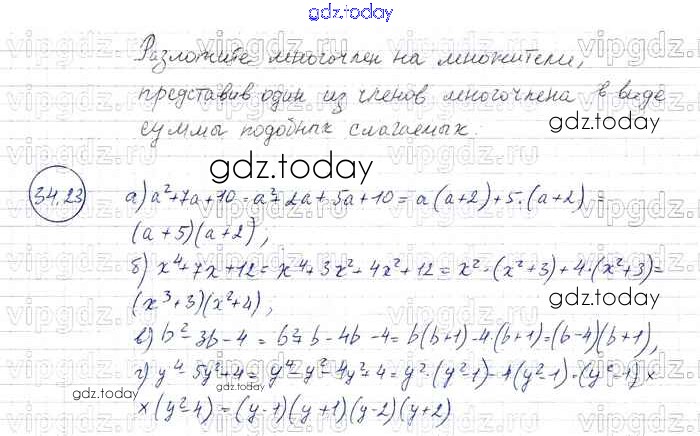 gdz.today
Разложите многочлен на множители,
представив один из членов многочлена в виде
суммы подобных слагаемых.
gdz.today
34.23 а) a²+7a+10 = a²+2a+5a+10 = a(a+2)+5·(a+2) =
(a+5)(a+2);
б) x⁴+7x+12 = x⁴+3x²+4x²+12 = x²·(x²+3)+4·(x²+3)=
gdz.today
(x³+3)(x²+4);
в) b²-3b-4 = b²+b-4b-4 = b(b+1)-4·(b+1)=(b-4)(b+1);
г) y⁴-5y²+4 = y⁴-y²-4y²+4 = y²·(y²-1)-4(y²-1)=(y²-1)×
gdz.today
×(y²-4)=(y-1)(y+1)(y-2)(y+2)
gdz.today